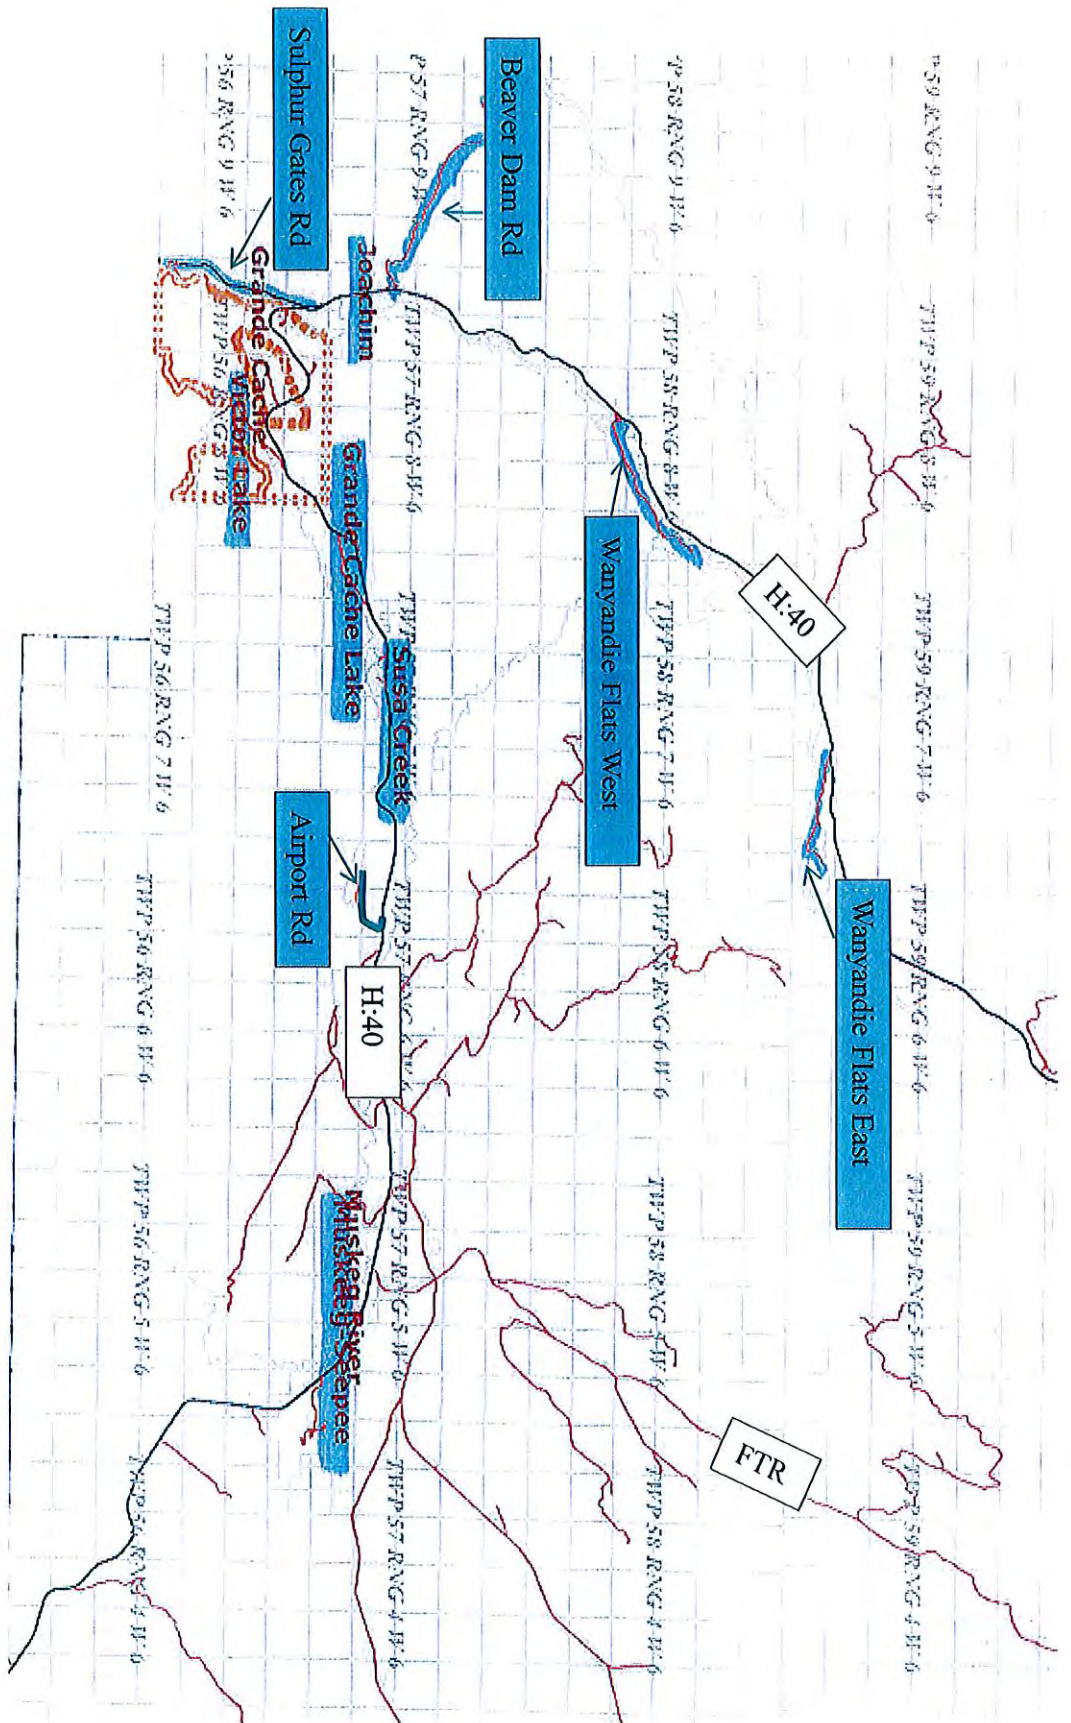 P 59 RNG 9 W 6
TWP 59 RNG 8 W 6
TWP 59 RNG 7 W 6
TWP 59 RNG 6 W 6
TWP 59 RNG 5 W 6
TWP 59 RNG 4 W 6
H:40
Wanyandie Flats East
FTR
P 58 RNG 9 W 6
TWP 58 RNG 8 W 6
TWP 58 RNG 7 W 6
TWP 58 RNG 6 W 6
TWP 58 RNG 5 W 6
TWP 58 RNG 4 W 6
Wanyandie Flats West
Beaver Dam Rd
P 57 RNG 9 W 6
TWP 57 RNG 8 W 6
TWP 57 RNG 6 W 6
TWP 57 RNG 5 W 6
TWP 57 RNG 4 W 6
Susa Creek
Joachim
Grande Cache Lake
H:40
Muskeg River
Muskeg Seepee
Sulphur Gates Rd
Airport Rd
Grande Cache
Victor Lake
P 56 RNG 9 W 6
TWP 56 RNG 8 W 6
TWP 56 RNG 7 W 6
TWP 56 RNG 6 W 6
TWP 56 RNG 5 W 6
TWP 56 RNG 4 W 6